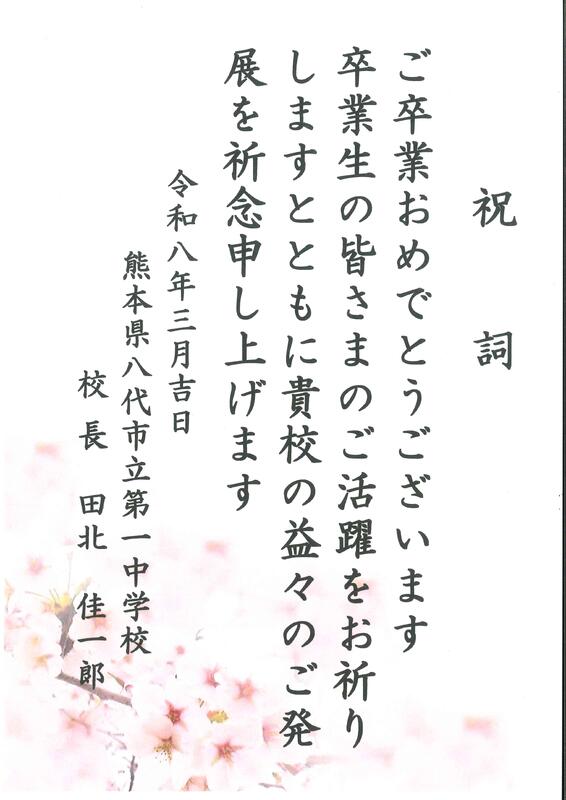 祝詞
ご卒業おめでとうございます
卒業生の皆さまのご活躍をお祈り
しますとともに貴校の益々のご発
展を祈念申し上げます
令和八年三月吉日
熊本県八代市立第一中学校
校長 田北 佳一郎